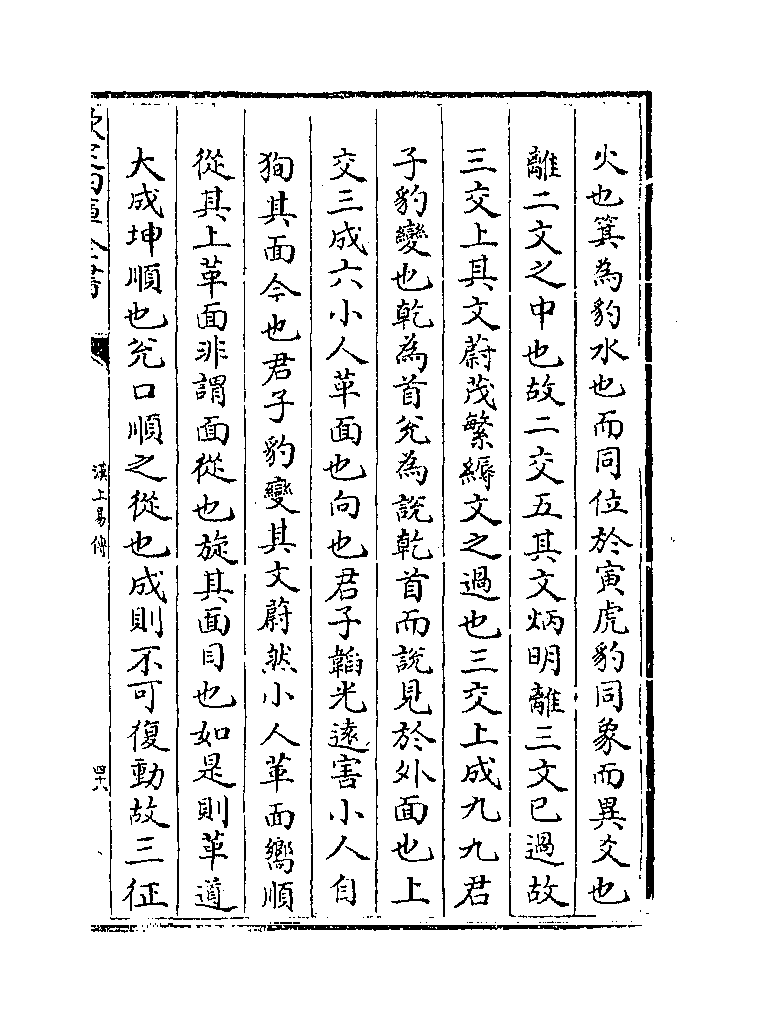 火也箕為豹水也而同位於寅虎豹同象而異爻也
離二文之中也故二交五其文炳明離三文已過故
三交上其文蔚茂繁縟文之過也三交上成九九君
子豹變也乾為首兊為說乾首而說見於外面也上
交三成六小人革面也向也君子韜光逺害小人自
狥其面今也君子豹變其文蔚然小人革面嚮順
從其上革面非謂面從也旋其面目也如是則革道
大成坤順也兊口順之從也成則不可復動故三征
欽定四庫全書
漢上易傳
四六